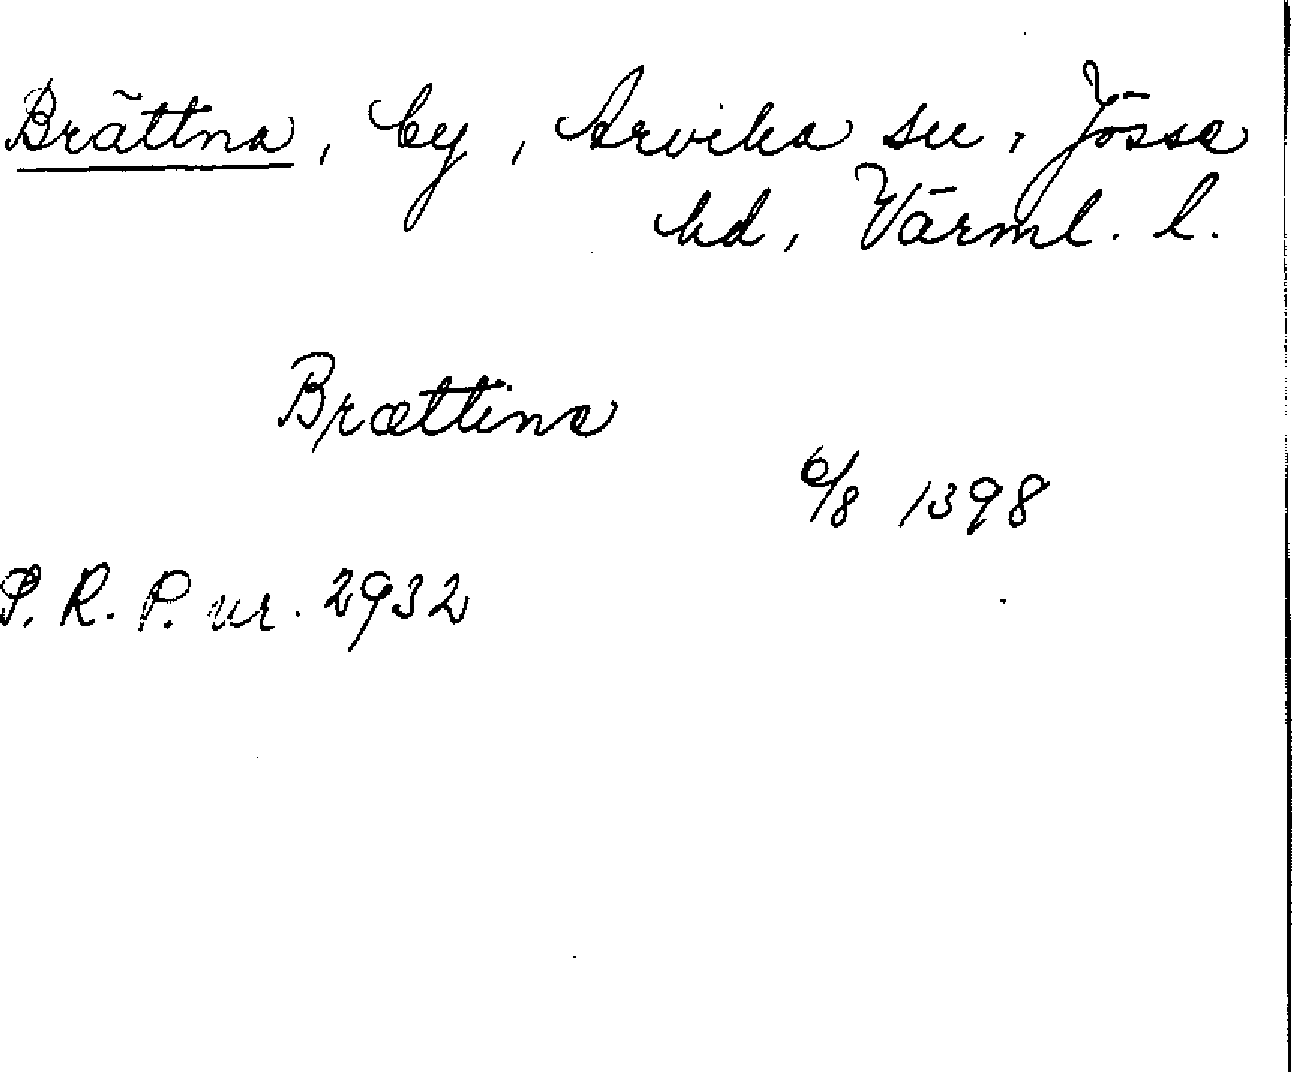 Brättna, by, Arvika sn, Jösse
hd, Värml. l.
Brættine
6/8 1398
P. R. P. nr. 2932